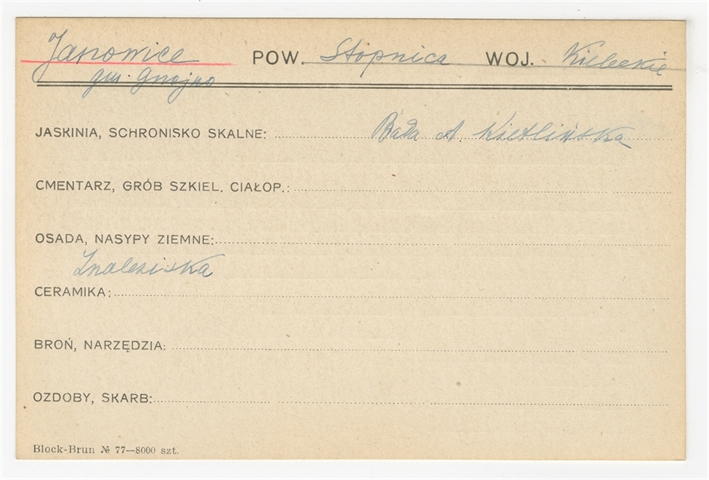 Janowice POW. Stopnica WOJ. Kieleckie
gm. Gnojno
JASKINIA, SCHRONISKO SKALNE: Bada A. Kietlińska
CMENTARZ, GRÓB SZKIEL. CIAŁOP.:
OSADA, NASYPY ZIEMNE:
Znaleziska
CERAMIKA:
BROŃ, NARZĘDZIA:
OZDOBY, SKARB:
Block-Brun № 77—8000 szt.